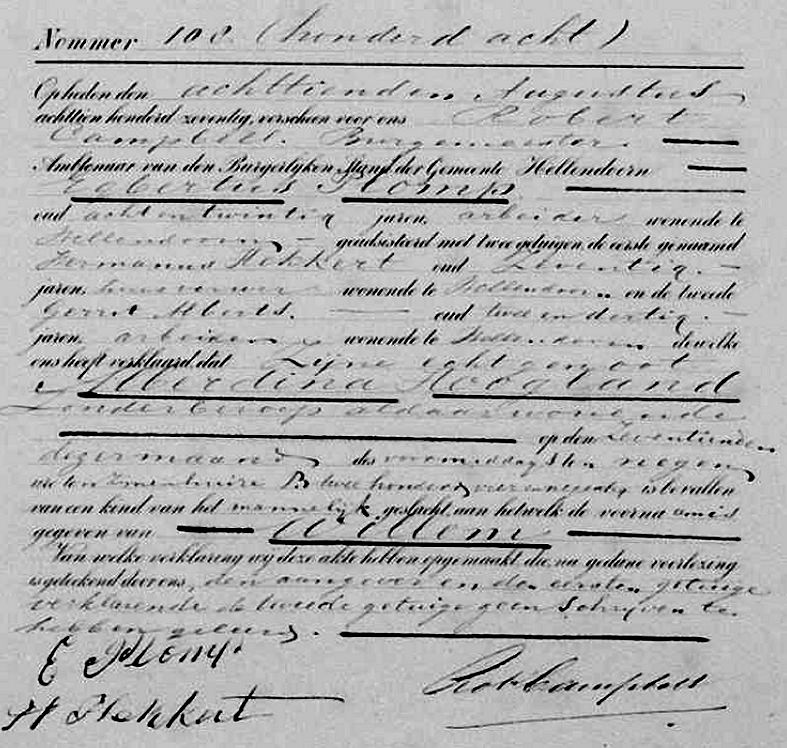 Nommer 108. (honderd acht)
Opheden den achttienden Augustus
achttien honderd zeventig, verscheen voor ons Robert
Campbell. Burgemeester.
Ambtenaar van den Burgerlijken Stand der Gemeente Hellendoorn
Egbertus Stomp
oud acht en twintig jaren, arbeider wonende te
Hellendoorn, geadsisteerd met twee getuigen, de eerste genaamd
Hermanus Hekkert oud Zeventig.
jaren, huisverwer wonende te Hellendoorn en de tweede
Gerrit Alberts. oud twee en dertig.
jaren, arbeider, wonende te Hellendoorn dewelke
ons heeft verklaard, dat Zijne echtgenoot
Alberdina Hoogland
Zonder beroep aldaar wonende
op den Zeventienden
dezer maand des voormiddags te negen
ure ten huize B twee honderd is bevallen
van een kind van het mannelijk geslacht, aan hetwelk de voornaam is
gegeven van Willem
Van welke verklaring wij deze akte hebben opgemaakt, die, na gedane voorlezing
is geteekend door ons, den aangever en den eersten getuige
verklarende de tweede getuige geen schrijven te
hebben geleerd.
E Stomp
H Hekkert Rob Campbell